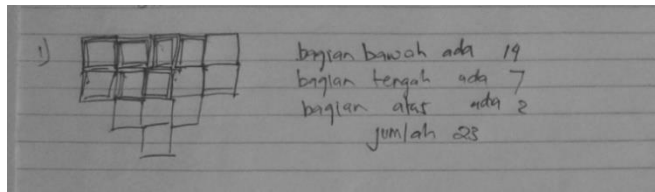 1)
bagian bawah ada 14
bagian tengah ada 7
bagian atas ada 2
jumlah 23